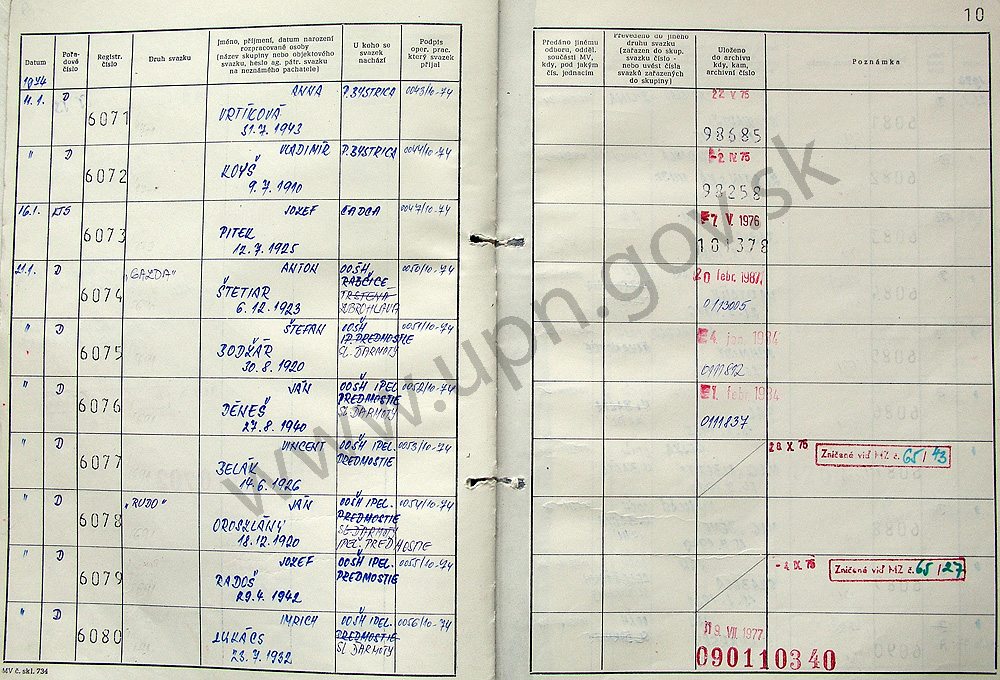 10
Datum
Pořa-
dové
číslo
Registr.
číslo
Druh svazku
Jméno, příjmení, datum narození
rozpracované osoby
(název skupiny nebo objektového
svazku, heslo ag. pátr. svazku
na neznámého pachatele)
U koho se
svazek
nachází
Podpis
oper. prac.
který svazek
přijal
Předáno jinému
odboru, odděl.
součásti MV,
kdy, pod jakým
čís. jednacím
Převedeno do jiného
druhu svazku
(zařazen do skup.
svazku číslo -
nebo uvést čísla
svazků zařazených
do skupiny)
Uloženo
do archivu
kdy, kam,
archivní číslo
Poznámka
1974
11.1. D 6071 ANNA P. BYSTRICA 0043/10-74 22 V 75
VRTÍKOVÁ
31.7.1943 98685
" D 6072 VLADIMÍR P. BYSTRICA 0044/10-74 -2. IV. 75
KOYŠ
9.7.1910 98258
16.1. 6073 JOZEF ČADCA 0047/10-74 -7 V. 1976
PITEK
12.7.1925 101378
21.1. D 6074 "GAZDA" ANTON OOŠH 0050/10-74 20 febr. 1987
RABČICE
ŠTETIAR TRSTENÁ
6.12.1923 ZUBROHLAVA 0113005
" D 6075 ŠTEFAN OOŠH 0051/10-74 4. jan. 1984
IP. PREDMOSTIE
BODŽÁR SL. ĎARMOTY
30.8.1920 0111812
" D 6076 JÁN OOŠH IPEL. 0052/10-74 1. febr. 1984
PREDMOSTIE
DÉNEŠ SL. ĎARMOTY
27.8.1940 0111837
" D 6077 VINCENT OOŠH IPEL. 0053/10-74 28. X. 75 Zničené viď MZ č. 65/43
PREDMOSTIE
BELÁK
14.6.1926
" D 6078 "RUDO" JÁN OOŠH IPEL. 0054/10-74
PREDMOSTIE
OROSZLÁNY SL. ĎARMOTY
18.12.1920 IPEĽ. PREDMOSTIE
" D 6079 JOZEF OOŠH IPEL. 0055/10-74 -4. IX. 75 Zničené viď MZ č. 65/27
PREDMOSTIE
RADOŠ
29.4.1942
" D 6080 IMRICH OOŠH IPEL. 0056/10-74
PREDMOSTIE 19. VII. 1977
LUKÁCS SL. ĎARMOTY
23.7.1932 090110340
MV č. skl. 734
www.upn.gov.sk